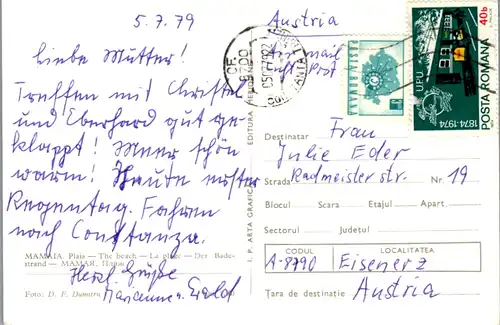 5.7.79
Liebe Mutter!
Treffen mit Christel
und Eberhard gut ge-
klappt! Meer schön
warm! Heute erster
Regentag. Fahren
nach Constanza.
Herzl. Grüße
Marianne u. Ewald
MAMAIA. Plaja — The beach — La plage — Der Bade-
strand — МАМАЯ.
Foto: D. F. Dumitru
I. P. ARTA GRAFICĂ
EDITURA MERIDIANE
Austria
Air mail
Luft Post
40b
POSTA ROMANA
UPU
1874-1974
Destinatar Frau
Julie Eder
Strada Radmeisterstr. Nr. 19
Blocul Scara Etajul Apart.
Sectorul Județul
CODUL LOCALITATEA
A-8790 Eisenerz
Țara de destinație Austria